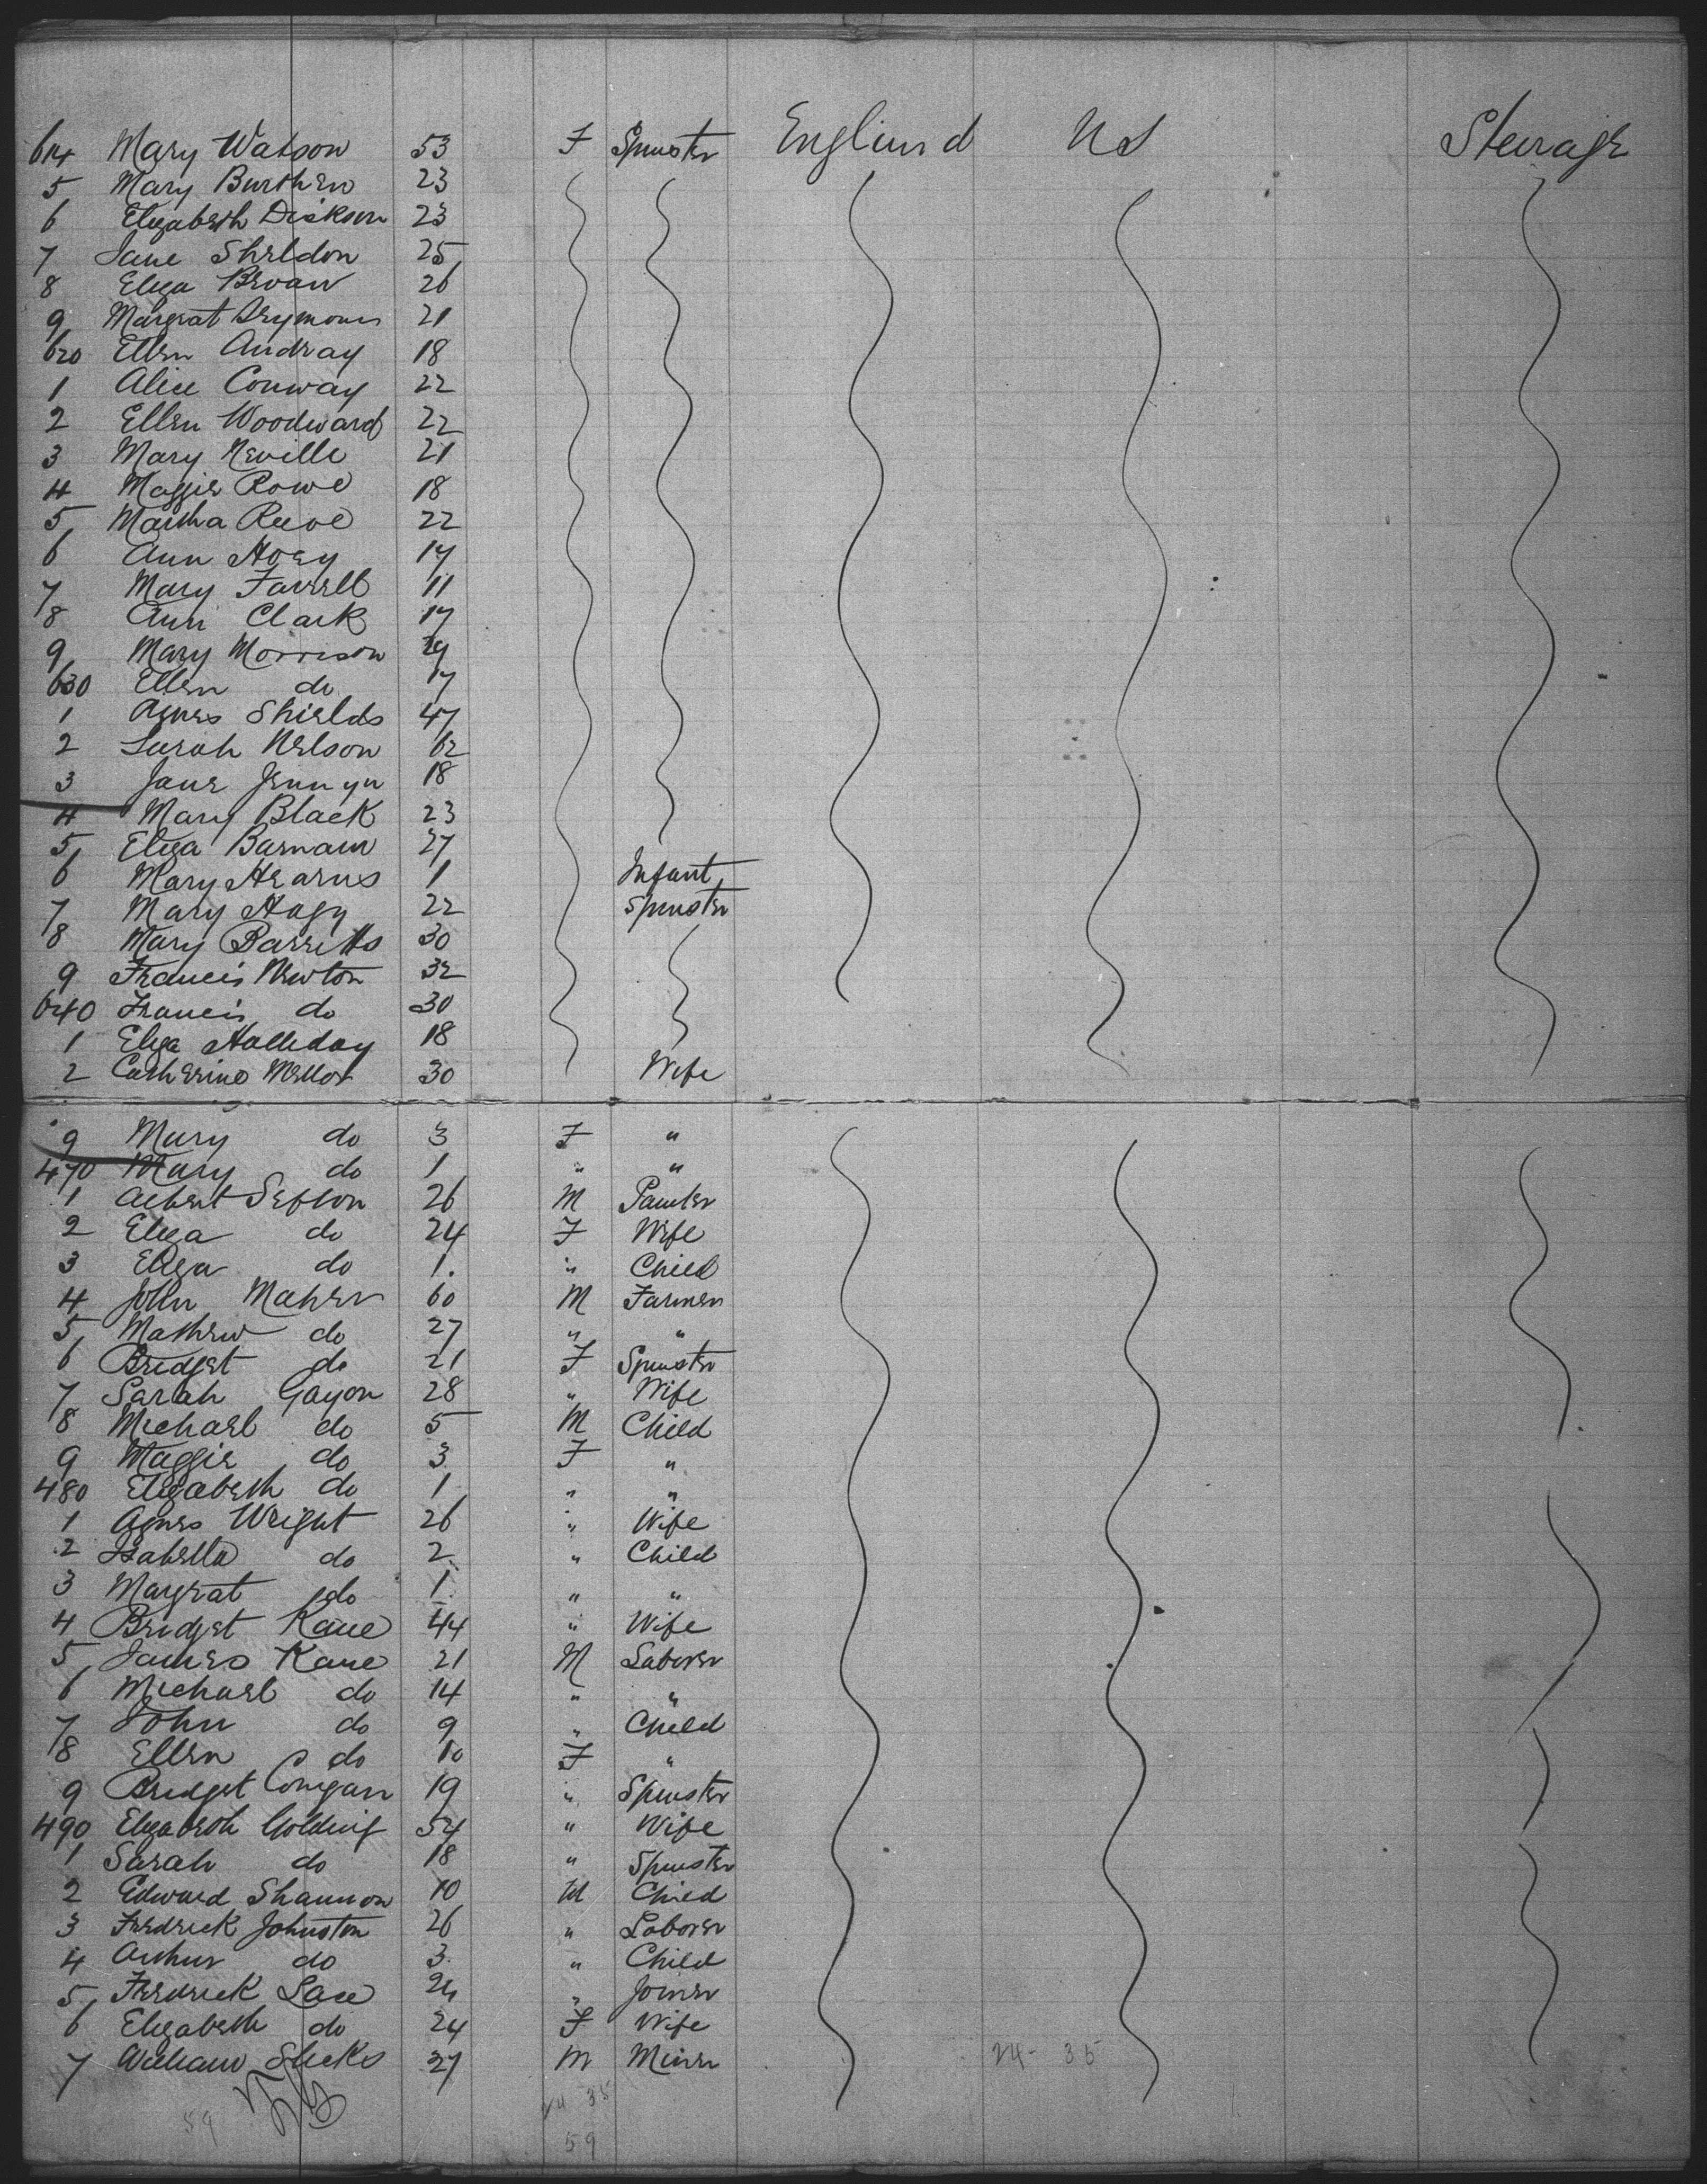 614 Mary Watson 53 F Spinster England US Steerage
5 Mary Burthen 23
6 Elizabeth Dickson 23
7 Jane Sheldon 25
8 Eliza 26
9 Margrat Seymour 21
620 Ellen Andray 18
1 Alice Conway 22
2 Ellen Woodward 22
3 Mary Neville 21
4 Maggie Rowe 18
5 Martha Reeve 22
6 Ann Hoey 17
7 Mary Farrell 11
8 Ann Clark 17
9 Mary Morrison 19
630 Ellen do 17
1 Agnes Shields 47
2 Sarah Nelson 62
3 Jane 18
4 Mary Black 23
5 Eliza Barnam 27
6 Mary Hearns 1 Infant
7 Mary 22 Spinster
8 Mary Barretts 30
9 Francis Newton 32
640 Francis do 30
1 Eliza Halliday 18
2 Catherine Mellor 30 Wife
9 Mary do 3 F "
470 Mary do 1 " "
1 Albert Sefton 26 M Painter
2 Eliza do 24 F Wife
3 Eliza do 1 " Child
4 John Maher 60 M Farmer
5 Mathew do 27 " "
6 Bridget do 21 F Spinster
7 Sarah Gayon 28 " Wife
8 Michael do 5 M Child
9 Maggie do 3 F "
480 Elizabeth do 1 " "
1 Agnes Wright 26 " Wife
2 Isabella do 2 " Child
3 Margrat do 1 " "
4 Bridget Kane 44 " Wife
5 James Kane 21 M Laborer
6 Michael do 14 " "
7 John do 9 " Child
8 Ellen do 10 F "
9 Bridget Corrigan 19 " Spinster
490 Elizabeth Golding 54 " Wife
1 Sarah do 18 " Spinster
2 Edward Shannon 10 M Child
3 Fredrick Johnston 26 " Laborer
4 Arthur do 3 " Child
5 Fredrick Lace 24 " Joiner
6 Elizabeth do 24 F Wife
7 William 27 M Miner
24 - 35
24 35
59
59